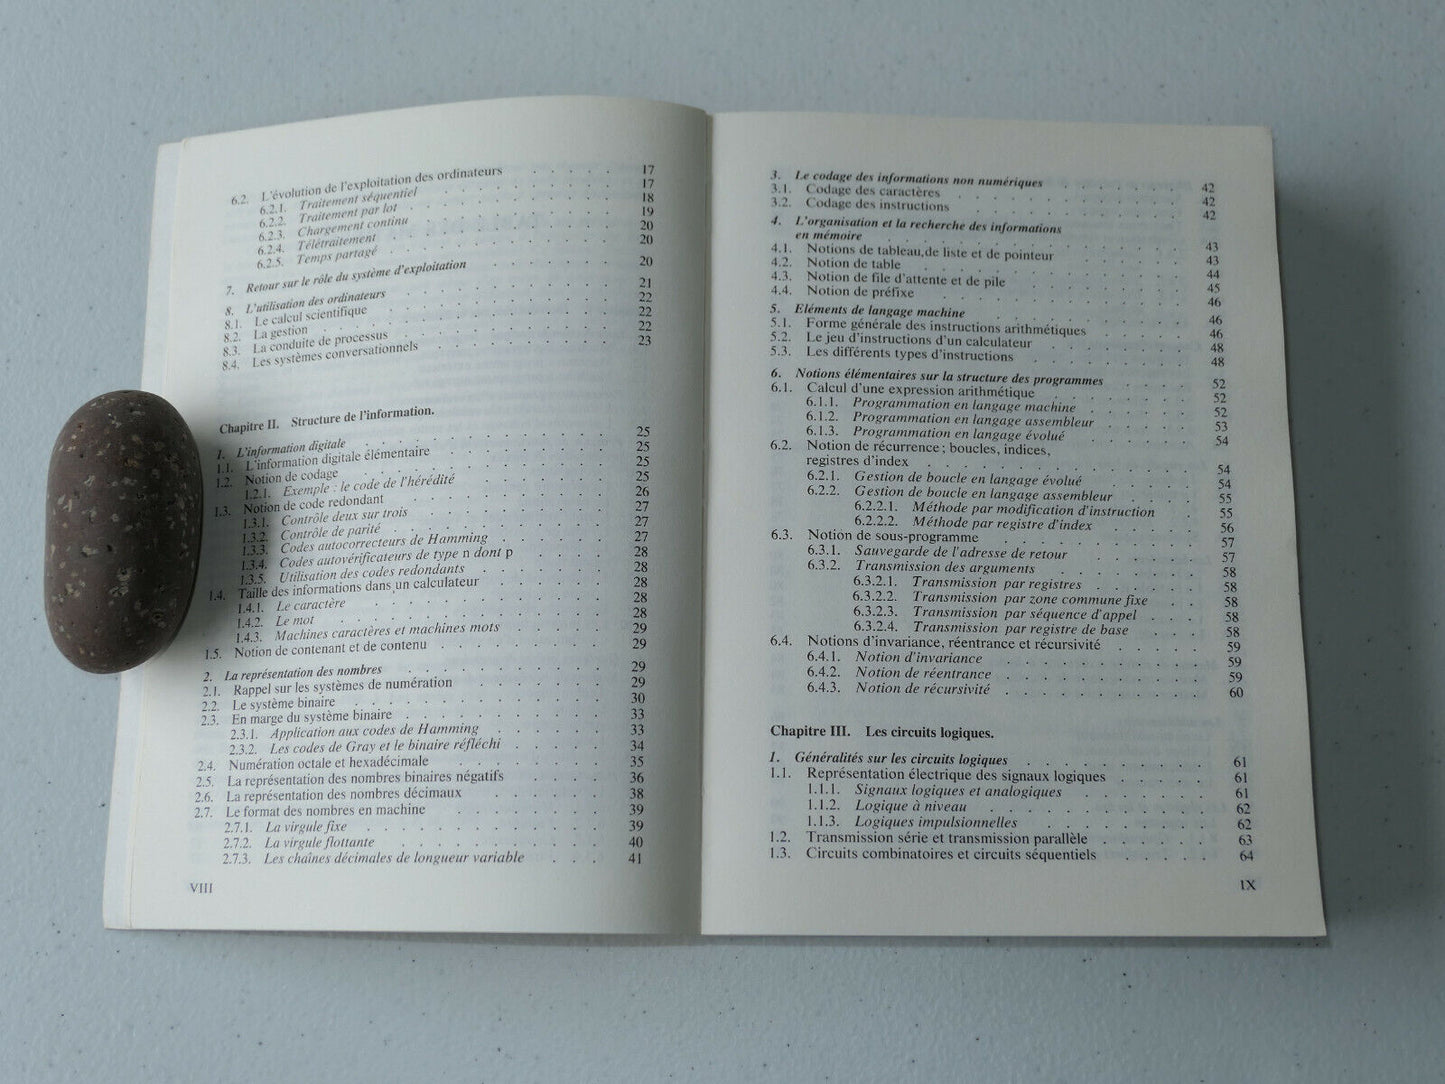 6.2. L'évolution de l'exploitation des ordinateurs . . . . . 17
6.2.1. Traitement séquentiel . . . . . 17
6.2.2. Traitement par lot . . . . . 18
6.2.3. Chargement continu . . . . . 19
6.2.4. Télétraitement . . . . . 20
6.2.5. Temps partagé . . . . . 20
7. Retour sur le rôle du système d'exploitation . . . . . 20
8. L'utilisation des ordinateurs . . . . . 21
8.1. Le calcul scientifique . . . . . 22
8.2. La gestion . . . . . 22
8.3. La conduite de processus . . . . . 22
8.4. Les systèmes conversationnels . . . . . 23
Chapitre II. Structure de l'information.
1. L'information digitale . . . . . 25
1.1. L'information digitale élémentaire . . . . . 25
1.2. Notion de codage . . . . . 25
1.2.1. Exemple : le code de l'hérédité . . . . . 25
1.3. Notion de code redondant . . . . . 26
1.3.1. Contrôle deux sur trois . . . . . 27
1.3.2. Contrôle de parité . . . . . 27
1.3.3. Codes autocorrecteurs de Hamming . . . . . 27
1.3.4. Codes autovérificateurs de type n dont p . . . . . 28
1.3.5. Utilisation des codes redondants . . . . . 28
1.4. Taille des informations dans un calculateur . . . . . 28
1.4.1. Le caractère . . . . . 28
1.4.2. Le mot . . . . . 28
1.4.3. Machines caractères et machines mots . . . . . 29
1.5. Notion de contenant et de contenu . . . . . 29
2. La représentation des nombres . . . . . 29
2.1. Rappel sur les systèmes de numération . . . . . 29
2.2. Le système binaire . . . . . 30
2.3. En marge du système binaire . . . . . 33
2.3.1. Application aux codes de Hamming . . . . . 33
2.3.2. Les codes de Gray et le binaire réfléchi . . . . . 34
2.4. Numération octale et hexadécimale . . . . . 35
2.5. La représentation des nombres binaires négatifs . . . . . 36
2.6. La représentation des nombres décimaux . . . . . 38
2.7. Le format des nombres en machine . . . . . 39
2.7.1. La virgule fixe . . . . . 39
2.7.2. La virgule flottante . . . . . 40
2.7.3. Les chaînes décimales de longueur variable . . . 41
VIII
3. Le codage des informations non numériques . . . . . 42
3.1. Codage des caractères . . . . . 42
3.2. Codage des instructions . . . . . 42
4. L'organisation et la recherche des informations
en mémoire . . . . . 43
4.1. Notions de tableau, de liste et de pointeur . . . . . 43
4.2. Notion de table . . . . . 44
4.3. Notion de file d'attente et de pile . . . . . 45
4.4. Notion de préfixe . . . . . 46
5. Eléments de langage machine . . . . . 46
5.1. Forme générale des instructions arithmétiques . . . . . 46
5.2. Le jeu d'instructions d'un calculateur . . . . . 48
5.3. Les différents types d'instructions . . . . . 48
6. Notions élémentaires sur la structure des programmes . . . . 52
6.1. Calcul d'une expression arithmétique . . . . . 52
6.1.1. Programmation en langage machine . . . . . 52
6.1.2. Programmation en langage assembleur . . . . . 53
6.1.3. Programmation en langage évolué . . . . . 54
6.2. Notion de récurrence ; boucles, indices,
registres d'index . . . . . 54
6.2.1. Gestion de boucle en langage évolué . . . . . 54
6.2.2. Gestion de boucle en langage assembleur . . . . . 55
6.2.2.1. Méthode par modification d'instruction . . 55
6.2.2.2. Méthode par registre d'index . . . . . 56
6.3. Notion de sous-programme . . . . . 57
6.3.1. Sauvegarde de l'adresse de retour . . . . . 57
6.3.2. Transmission des arguments . . . . . 58
6.3.2.1. Transmission par registres . . . . . 58
6.3.2.2. Transmission par zone commune fixe . . 58
6.3.2.3. Transmission par séquence d'appel . . . 58
6.3.2.4. Transmission par registre de base . . . 58
6.4. Notions d'invariance, réentrance et récursivité . . . . . 59
6.4.1. Notion d'invariance . . . . . 59
6.4.2. Notion de réentrance . . . . . 59
6.4.3. Notion de récursivité . . . . . 60
Chapitre III. Les circuits logiques.
1. Généralités sur les circuits logiques . . . . . 61
1.1. Représentation électrique des signaux logiques . . . . . 61
1.1.1. Signaux logiques et analogiques . . . . . 61
1.1.2. Logique à niveau . . . . . 62
1.1.3. Logiques impulsionnelles . . . . . 62
1.2. Transmission série et transmission parallèle . . . . . 63
1.3. Circuits combinatoires et circuits séquentiels . . . . . 64
IX